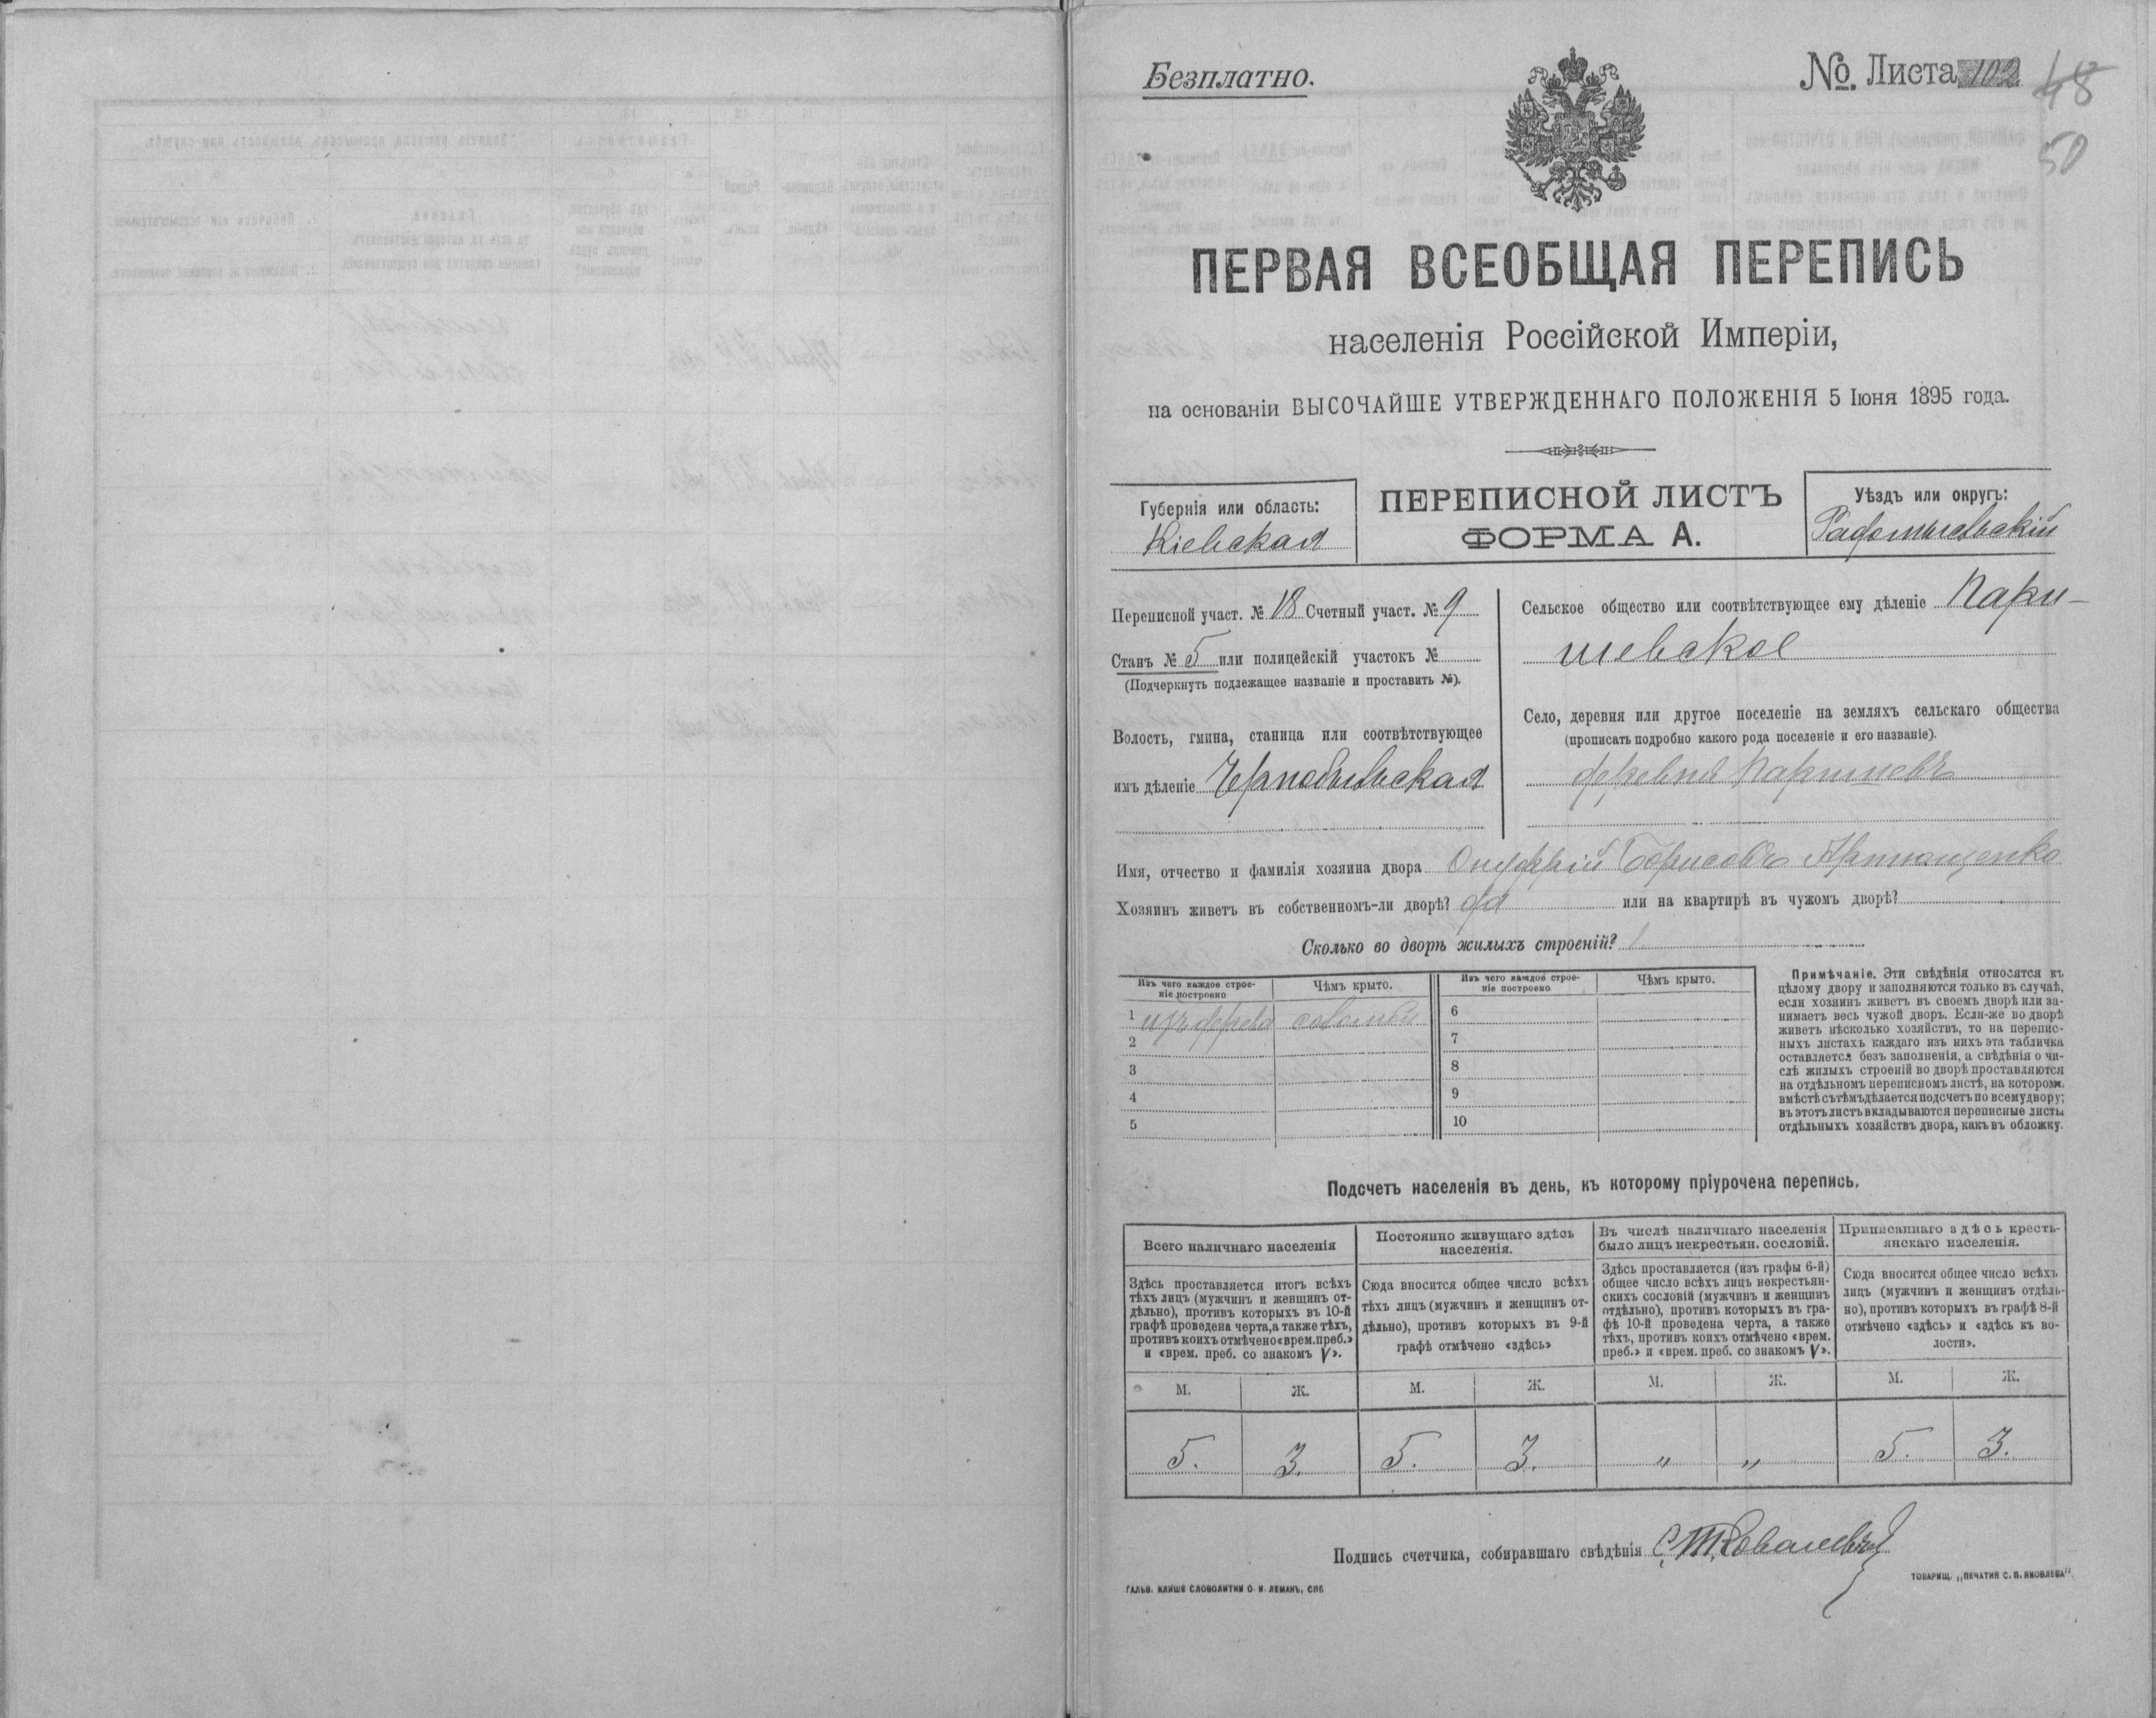 Безплатно.
№. Листа 102
48
50
ПЕРВАЯ ВСЕОБЩАЯ ПЕРЕПИСЬ
населенія Россійской Имперіи,
на основаніи ВЫСОЧАЙШЕ УТВЕРЖДЕННАГО ПОЛОЖЕНІЯ 5 Іюня 1895 года.
Губернія или область:
Кіевская
ПЕРЕПИСНОЙ ЛИСТЪ
ФОРМА А.
Уѣздъ или округъ:
Радомысльскій
Переписной участ. № 18 Счетный участ. № 9
Станъ № 5 или полицейскій участокъ №
(Подчеркнуть подлежащее названіе и проставить №).
Волость, гмина, станица или соотвѣтствующее
имъ дѣленіе Чернобыльская
Сельское общество или соотвѣтствующее ему дѣленіе Пари-
шевское
Село, деревня или другое поселеніе на земляхъ сельскаго общества
(прописать подробно какого рода поселеніе и его названіе).
деревня Паришевъ
Имя, отчество и фамилія хозяина двора Онуффрій Борисовъ Артющенко
Хозяинъ живетъ въ собственномъ-ли дворѣ? да или на квартирѣ въ чужомъ дворѣ?
Сколько во дворѣ жилыхъ строеній? 1
Изъ чего каждое строе-
ніе построено
Чѣмъ крыто.
Изъ чего каждое строе-
ніе построено
Чѣмъ крыто.
1 изъ дерева соломой
2
3
4
5
6
7
8
9
10
Примѣчаніе. Эти свѣдѣнія относятся къ
цѣлому двору и заполняются только въ случаѣ,
если хозяинъ живетъ въ своемъ дворѣ или за-
нимаетъ весь чужой дворъ. Если-же во дворѣ
живетъ нѣсколько хозяйствъ, то на перепис-
ныхъ листахъ каждаго изъ нихъ эта табличка
оставляется безъ заполненія, а свѣдѣнія о чи-
слѣ жилыхъ строеній во дворѣ проставляются
на отдѣльномъ переписномъ листѣ, на которомъ
вмѣстѣ съ тѣмъ дѣлается подсчетъ по всему двору;
въ этотъ листъ вкладываются переписные листы
отдѣльныхъ хозяйствъ двора, какъ въ обложку.
Подсчетъ населенія въ день, къ которому пріурочена перепись.
Всего наличнаго населенія
Здѣсь проставляется итогъ всѣхъ
тѣхъ лицъ (мужчинъ и женщинъ от-
дѣльно), противъ которыхъ въ 10-й
графѣ проведена черта, а также тѣхъ,
противъ коихъ отмѣчено «врем. преб.»
и «врем. преб. со знакомъ V».
Постоянно живущаго здѣсь
населенія.
Сюда вносится общее число всѣхъ
тѣхъ лицъ (мужчинъ и женщинъ от-
дѣльно), противъ которыхъ въ 9-й
графѣ отмѣчено «здѣсь»
Въ числѣ наличнаго населенія
было лицъ некрестьян. сословій.
Здѣсь проставляется (изъ графы 6-й)
общее число всѣхъ лицъ некрестьян-
скихъ сословій (мужчинъ и женщинъ
отдѣльно), противъ которыхъ въ гра-
фѣ 10-й проведена черта, а также
тѣхъ, противъ коихъ отмѣчено «врем.
преб.» и «врем. преб. со знакомъ V».
Приписаннаго здѣсь кресть-
янскаго населенія.
Сюда вносится общее число всѣхъ
лицъ (мужчинъ и женщинъ отдѣль-
но), противъ которыхъ въ графѣ 8-й
отмѣчено «здѣсь» и «здѣсь къ во-
лости».
М. Ж. М. Ж. М. Ж. М. Ж.
5. 3. 5. 3. " " 5. 3.
Подпись счетчика, собиравшаго свѣдѣнія
ГАЛЬВ. КЛИШЕ СЛОВОЛИТНИ О. И. ЛЕМАНЪ, СПБ
ТОВАРИЩ. „ПЕЧАТНЯ С. П. ЯКОВЛЕВА"